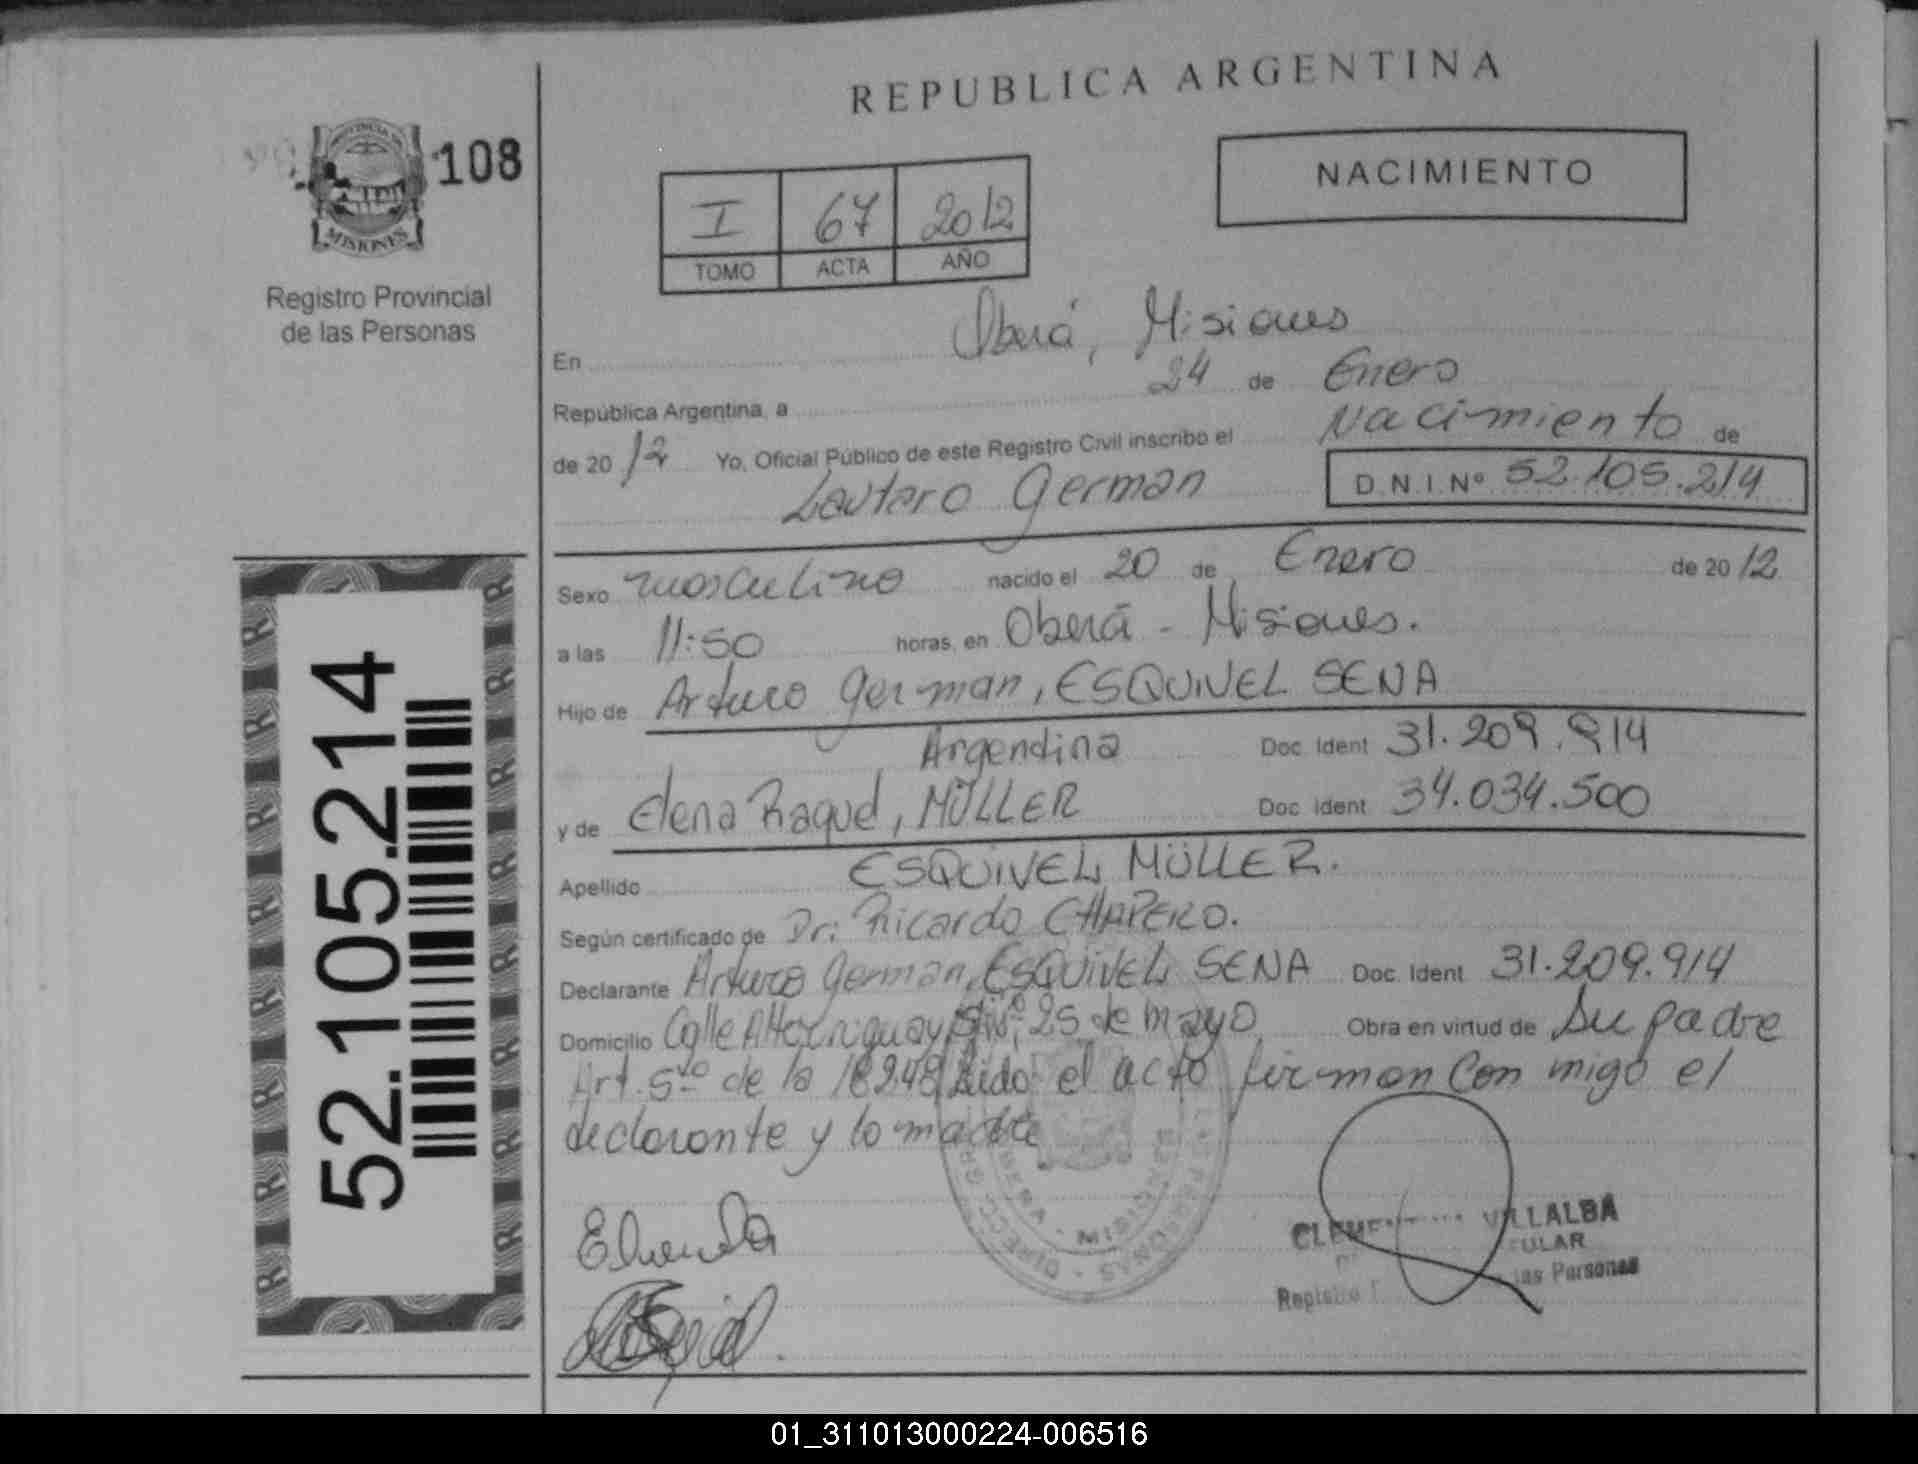 REPUBLICA ARGENTINA
PROVINCIA DE
MISIONES
108
Registro Provincial
de las Personas
I 67 2012
TOMO ACTA AÑO
NACIMIENTO
En Oberá, Misiones
República Argentina, a 24 de Enero
de 2012 Yo, Oficial Público de este Registro Civil inscribo el Nacimiento de
Lautaro German D.N.I.Nº 52.105.214
Sexo masculino nacido el 20 de Enero de 2012
a las 11:50 horas, en Oberá - Misiones.
Hijo de Arturo German, ESQUIVEL SENA
Argendina Doc. Ident 31.209.914
y de Elena Raquel, MÜLLER Doc. Ident 34.034.500
Apellido ESQUIVEL MÜLLER.
Según certificado de Dr: Ricardo CHAPERO.
Declarante Arturo German, ESQUIVEL SENA Doc. Ident 31.209.914
Domicilio Calle 25 de mayo Obra en virtud de Su padre
Art. 5to de la 18248 Leido el acto firman Con migo el
declarante y la madre
52.105.214
VILLALBA
TULAR
las Personas
01_311013000224-006516